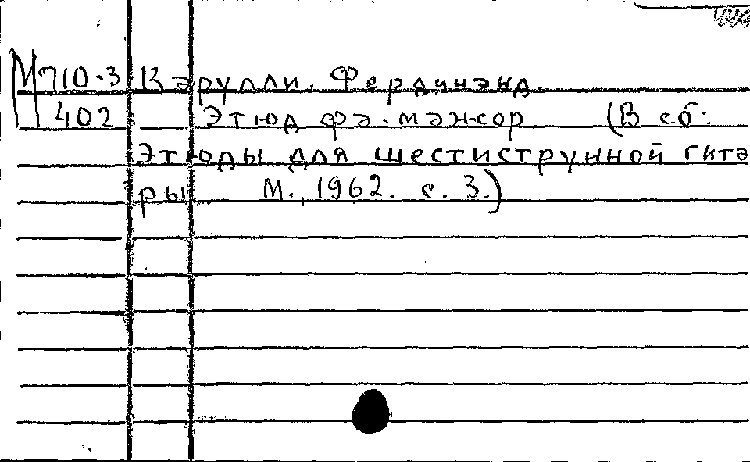 М710.3 Карулли. Фердинанд.
402 Этюд фа-мажор (В сб.
Этюды для шестиструнной гита
ры М., 1962. с. 3.)